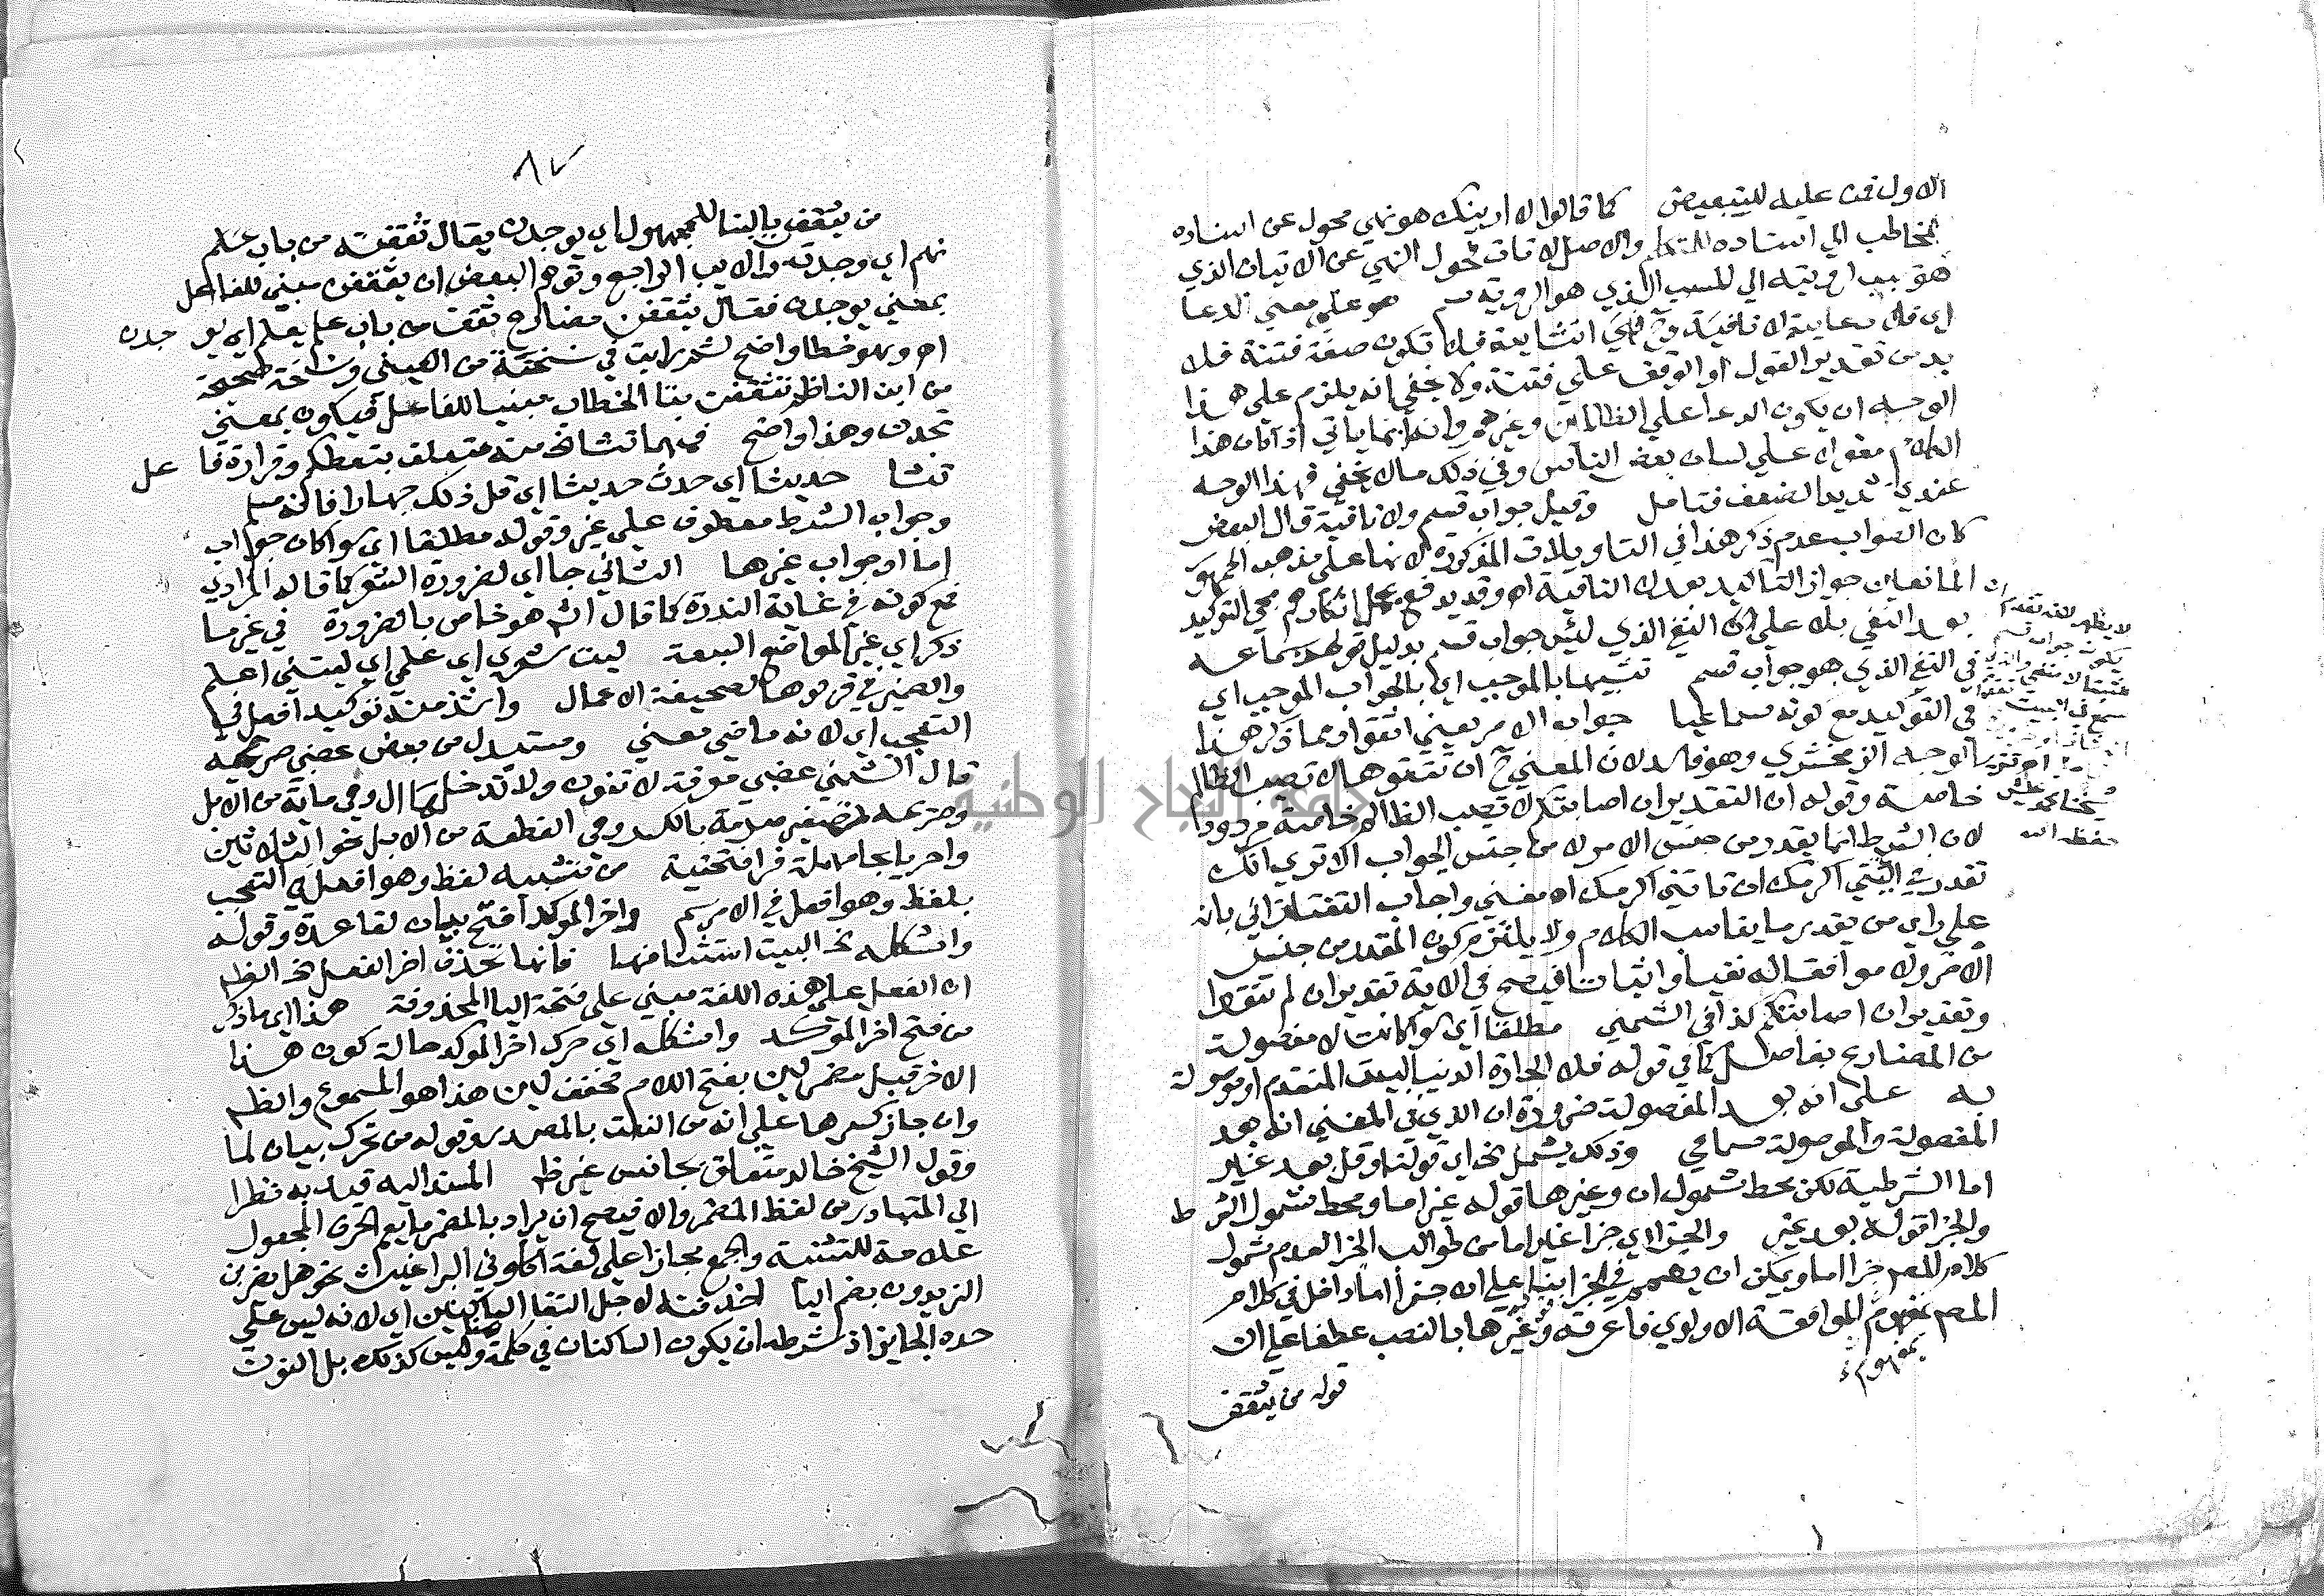 الاول فمن عليه للتبعيض كما قالوا لا ارينك هو نهي محول عن اسناده
للمخاطب الي اسناده للمتكلم والاصل لا تات فحول النهي عن الاتيان الذي
هو سبب الرويته الي المسبب الذي هو الروية سم هو علي معني الدعا
اي فلا دعايية لا نافية وح فهي انشايية فلا تكون صفة فتنة فلا
بد من تقدير القول او الوقف علي فتنة ولا يخفي انه يلزم علي هذا
الوجه ان يكون الدعا علي الظالمين وغيرهم وانه انما ياتي اذا كان هذا
الكلام مقولا علي لسان بعض الناس وفي ذلك ما لا يخفي فهذا الوجه
عندي شديد الضعف فتامل وقيل جواب قسم ولا نافية قال البعض
كان الصواب عدم ذكر هذا في التاويلات المذكورة لانها علي مذهب الجمهور
المانعين جواز التاكيد بعد لا النافية اه وقد يدفع بحمل انكارهم مجي التوكيد
بعد النفي بلا علي النفي الذي ليس جواب قسم بدليل قولهم سماعه
في النفي الذي هو جواب قسم تشبيها بالموجب اي بالجواب الموجب اي
في التوكيد مع كونه سماعيا جواب الامر يعني اتقوا ومما ذكر هذا
الوجه الزمخشري وهو فاسد لان المعني ح ان تتقوها لا تصيب الظالم
خاصة وقوله ان التقدير ان اصابتكم لا تصيب الظالم خاصة مردود
لان الشرط انما يقدر من جنس الامر لا من جنس الجواب الا تري انك
تقدر في ايتني اكرمك ان تاتني اكرمك اه مغني واجاب التفتازاني بانه
علي راي من يقدر ما يناسب الكلام ولا يلتزم كون المقدر من جنس
الامر ولا موافقا له نفيا واثباتا فيصح في الاية تقدير ان لم تتقوا
وتقدير ان اصابتكم كذا في الشمني مطلقا اي سوا كانت لا مفصولة
من المضارع بفاصل كما في قوله فلا الجارة الدنيا البيت المتقدم او موصولة
به علي انه بعد المفصولة ضرورة ان الذي في المغني انه بعد
المفصولة والموصولة سماعي وذلك يشمل نحو اي قولته وقل بعد غير
اما الشرطية لكن محط شمول ان وغيرها قوله غير اما ومحط شمول الشرط
والجزا قوله بعد غير والجزا اي جزا غير اما من طوالب الجزا لعدم شمول
كلام المص جزا اما ويمكن ان يعمم في الجزا بنيا علي ان جزا اما داخل في كلام
المص بمفهوم الموافقة الاولوي فاعرفه وغيرها بالنصب عطفا علي ان
بمفهوم
قوله من يثقفن
لا يظهر لانه تقدم
يكون جواب قسم
شيخنا محمد عليش
حفظه الله
٨٧
من يثقفن بالبنا للمجهول اي يوجدن يقال ثقفته من باب علم
فهم اي وجدته والايب الراجع وتوهم البعض ان يثقفن مبني للفاعل
بمعني يوجدن فقال يثقفن مضارع ثقف من باب علم يعلم اي يوجدن
اه وهو خطا واضح ثم رايت في نسخة من العيني ونسخة صحيحة
من ابن الناظم تثقفن بتا الخطاب مبنيا للفاعل فيكون بمعني
تجدن وهذا واضح فمهما تشا نخ منه متعلق بتعطكم وقرارة فاعل
تشا حديثا اي حدث حديثا اي قل ذلك جهارا فالخ سم
وجواب الشرط معطوف علي غير وقوله مطلقا اي سوا كان جواب
اما او جواب غيرها الثاني جا اي لضرورة الشعر كما قاله المرادي
مع كونه في غاية الندرة كما قال الش هو خاص بالضرورة في غير ما
ذكر اي غير المواضع السبعة ليت شعري اي علمي اي ليتني اعلم
والضمير في قربوها لصحيفة الاعمال واشذ منه توكيد افعل في
التعجب اي لانه ماضي معني ومستبدل من بعض غضبي صريمة
قال الشمني غضبي معرفة لا تنون ولا تدخلها ال وهي ماية من الابل
وصريمة تصغير صرمة بالكسر وهي القطعة من الابل نحو الثلاثين
واحريا بحا مهملة فرا فتحتية من تشبيه لفظ وهو افعل في التعجب
بلفظ وهو افعل في الامر سم واخر الموكد افتح بيان لقاعدة وقوله
واشكله نخ البيت استثنا منها فانها تحذف اخر الفعل نخ الظم
ان الفعل علي هذه اللغة مبني علي فتحة اليا المحذوفة هذا اي ما ذكر
من فتح اخر الموكد واشكله اي حرك اخر الموكد حالة كون هذا
الاخر قبل مضمر لين بفتح اللام مخفف لين هذا هو المسموع والظم
وان جاز كسرها علي انه من النعت بالمصدر وقوله من تحرك بيان لما
وقول الشيخ خالد متعلق بجانس غير ظ المسند اليه قيد به نظرا
الي المتبادر من لفظ المضمر والا فيصح ان يراد بالمضمر ما يعم الحرف المجعول
علامة للتثنية والجمع مجازا علي لغة اكلوني البراغيث نحو هل يضربن
الزيدون بضم اليا لحذفته لاجل التقا الساكنين اي لانه ليس علي
حده الجايز اذ شرطه ان يكون الساكنان في كلمة وليس كذلك بل النون
جامعة النجاح الوطنية